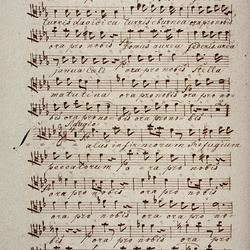 turris davidica turris eburnea ora pro nobis
ora pro nobis Domus aurea foederis arca
janua Cœli ora pro nobis Stella
matutina ora pro nobis ora pro no-
bis ora pro no- bis ora pro nobis
Salus infirmorum Refugium
peccatorum ora pro nobis
ora pro nobis ora pro no-
bis ora pro nobis
ora pro nobis ora pro nobis